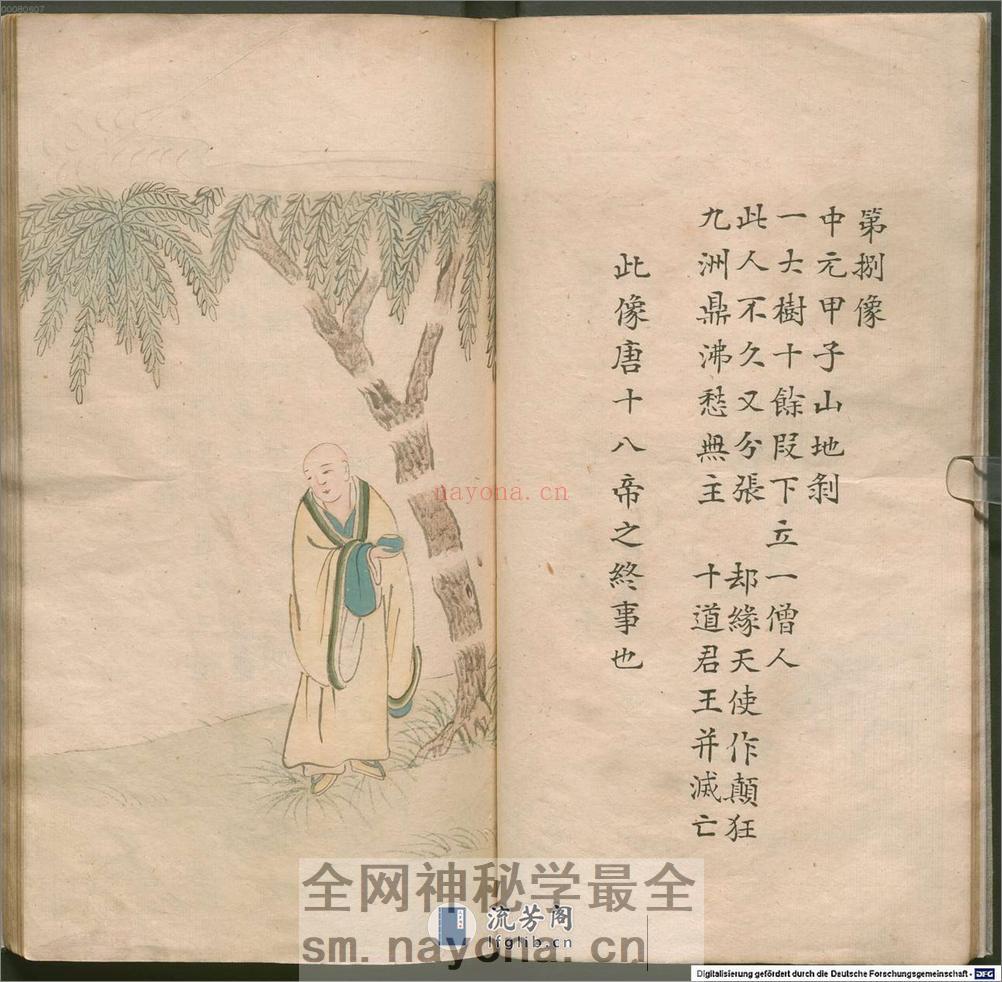 00080607
第捌像
中元甲子山地剝
一大樹十餘段下立一僧人
此人不久又分張 却緣天使作顛狂
九洲鼎沸愁無主 十道君王并滅亡
此像唐十八帝之終事也
nayona.cn
全网神秘学最全
流芳阁
lfglib.cn
sm.nayona.cn
Digitalisierung gefördert durch die Deutsche Forschungsgemeinschaft - DFG